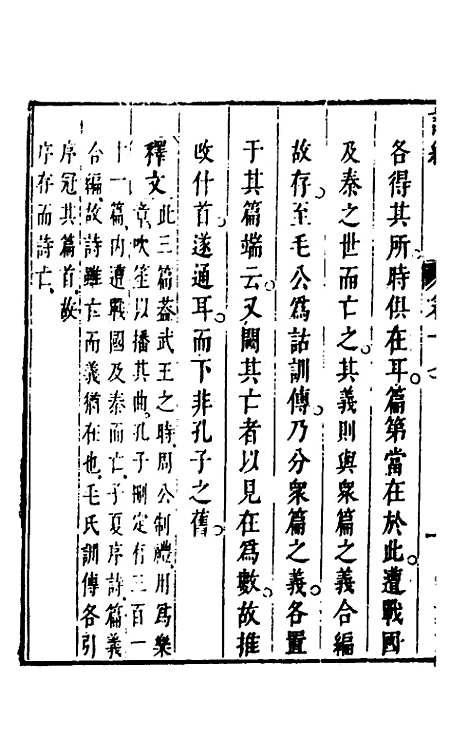 各得其所時俱在耳。篇第當在於此。遭戰國
及秦之世而亡之。其義則與衆篇之義合編
故存。至毛公爲詁訓傳。乃分衆篇之義。各置
于其篇端云。又闕其亡者以見在爲數。故推
改什首。遂通耳。而下非孔子之舊。
釋文 此三篇蓋武王之時周公制禮用爲樂
章吹笙以播其曲孔子刪定在三百一
十一篇内遭戰國及秦而亡子夏序詩篇義
合編故詩雖亡而義猶在也毛氏訓傳各引
序冠其篇首故
序存而詩亡